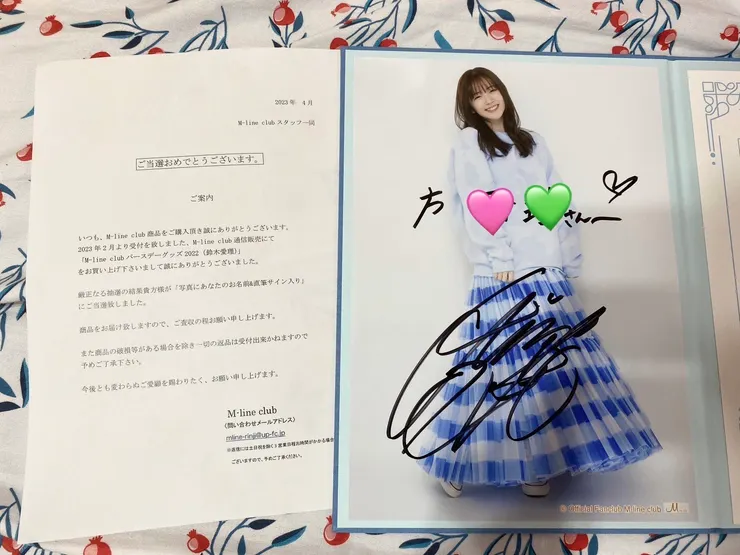 2023年 4月
M-line club スタッフ一同
ご当選おめでとうございます。
ご案内
いつも、M-line club 商品をご購入頂き誠にありがとうございます。
2023年2月より受付を致しました、M-line club 通信販売にて
「M-line club バースデーグッズ 2022（鈴木愛理）」
をお買い上げ下さいまして誠にありがとうございました。
厳正なる抽選の結果貴方様が「写真にあなたのお名前&直筆サイン入り」
にご当選致しました。
商品をお届け致しますので、ご査収の程お願い申し上げます。
また商品の破損等がある場合を除き一切の返品は受付出来かねますので
予めご了承下さい。
今後とも変わらぬご愛顧を賜わりたく、お願い申し上げます。
M-line club
（問い合わせメールアドレス）
mline-rinji@up-fc.jp
※返信には土日祝を除く3営業日程お時間がかかる場合
ございますので、予めご了承ください。
さんへ
© Official Fanclub M-line club